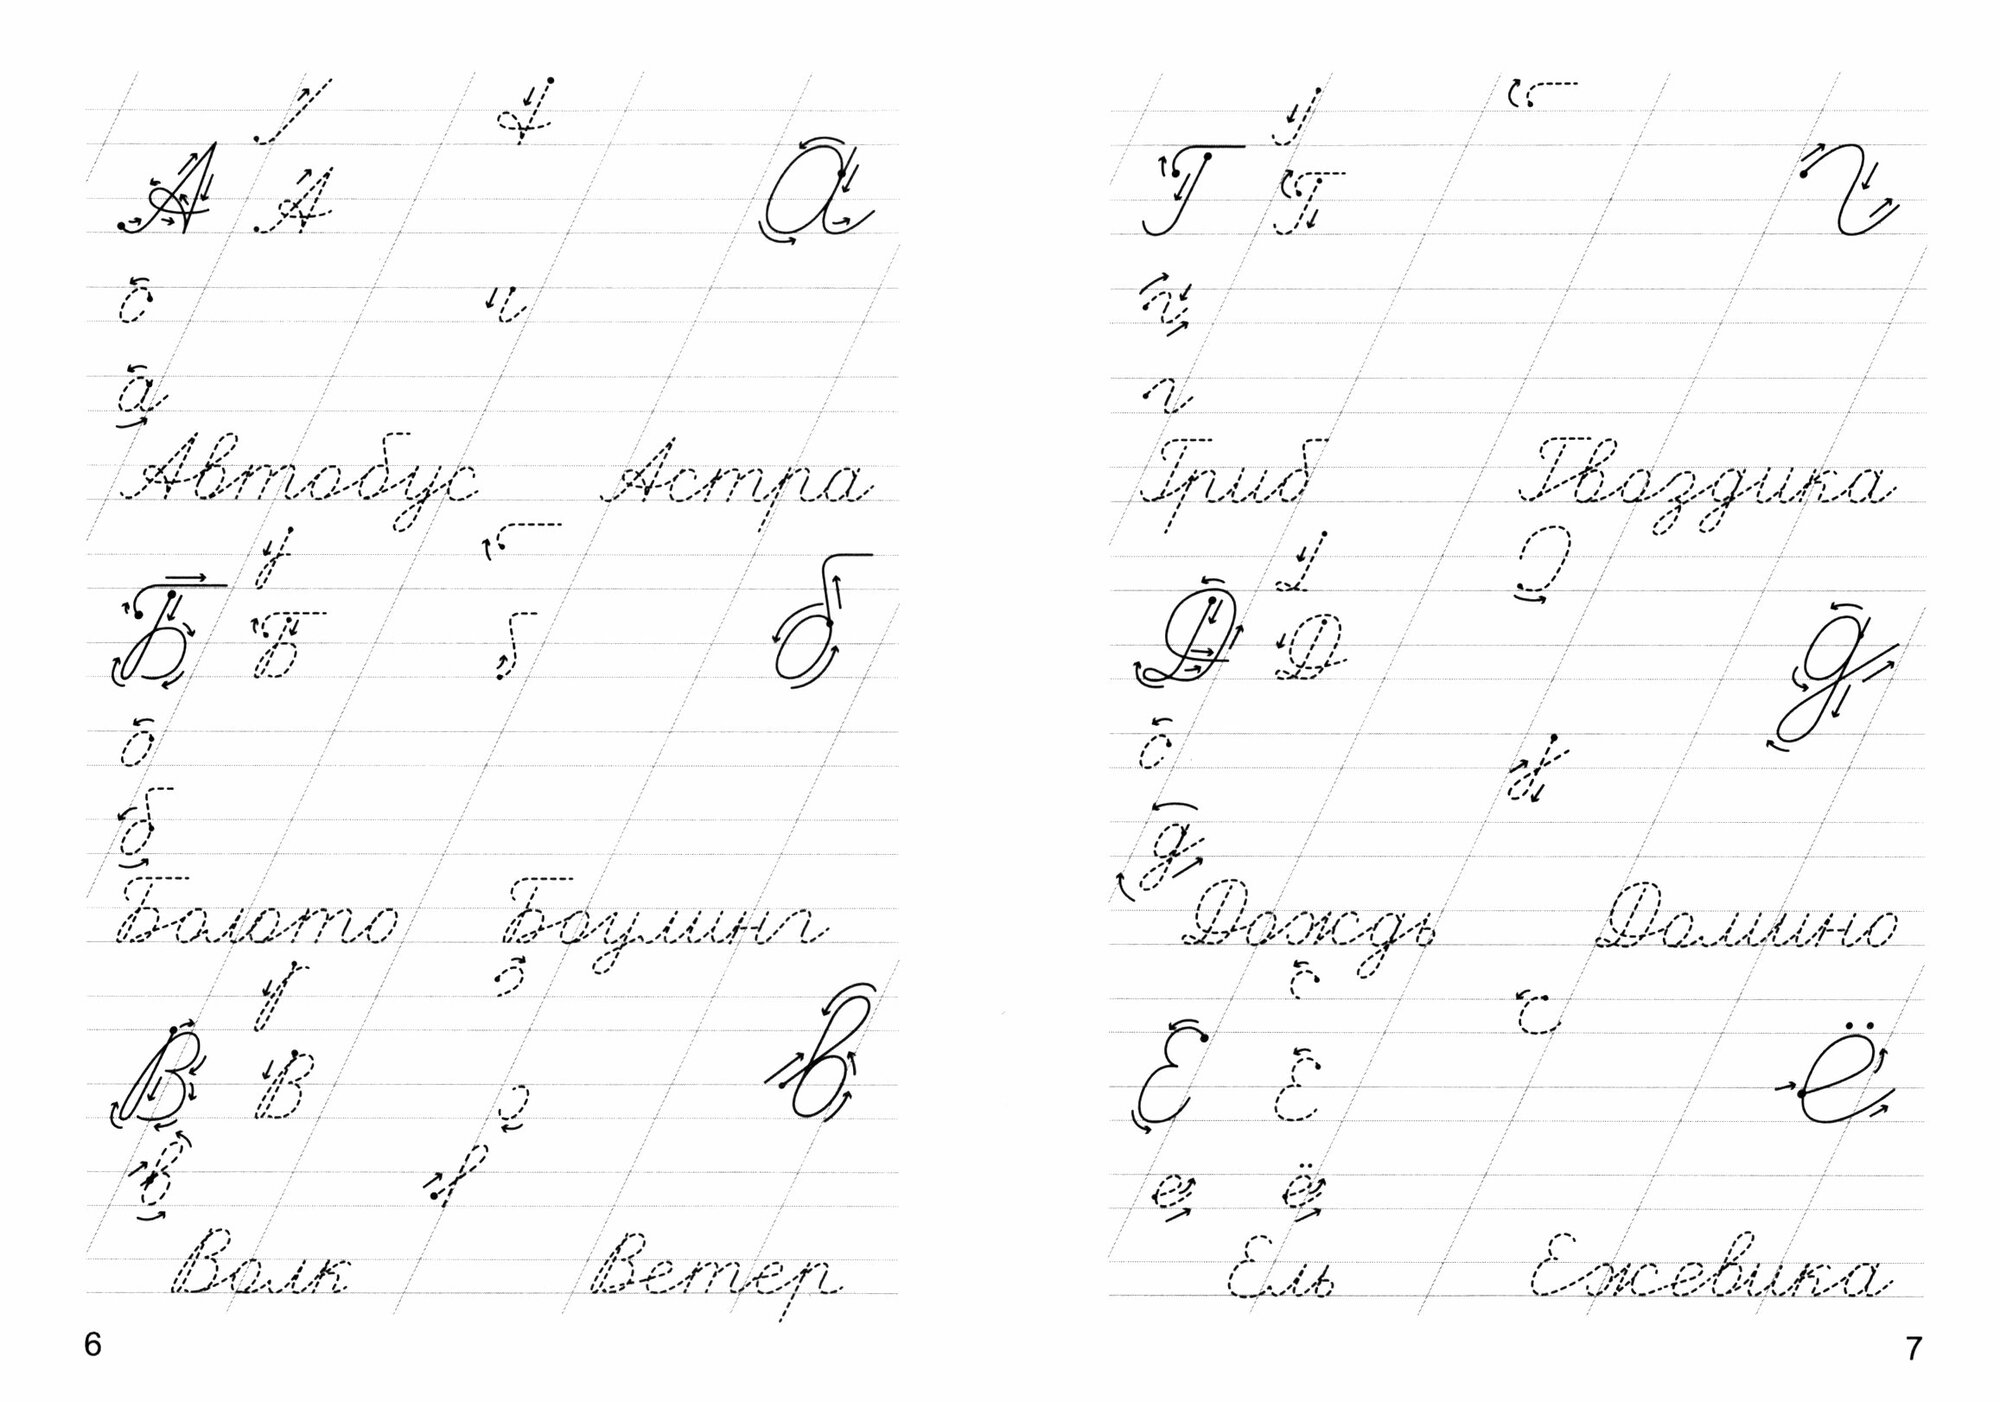 А А а
а
Автобус Астра
Б Б б
б
Болото Боулинг
В В в
в
Волк Ветер
6
Г Г г
г
г
Гриб Гвоздика
Д Д д
д
Дождь Домино
Е Е ё
е ё
Ель Ежевика
7